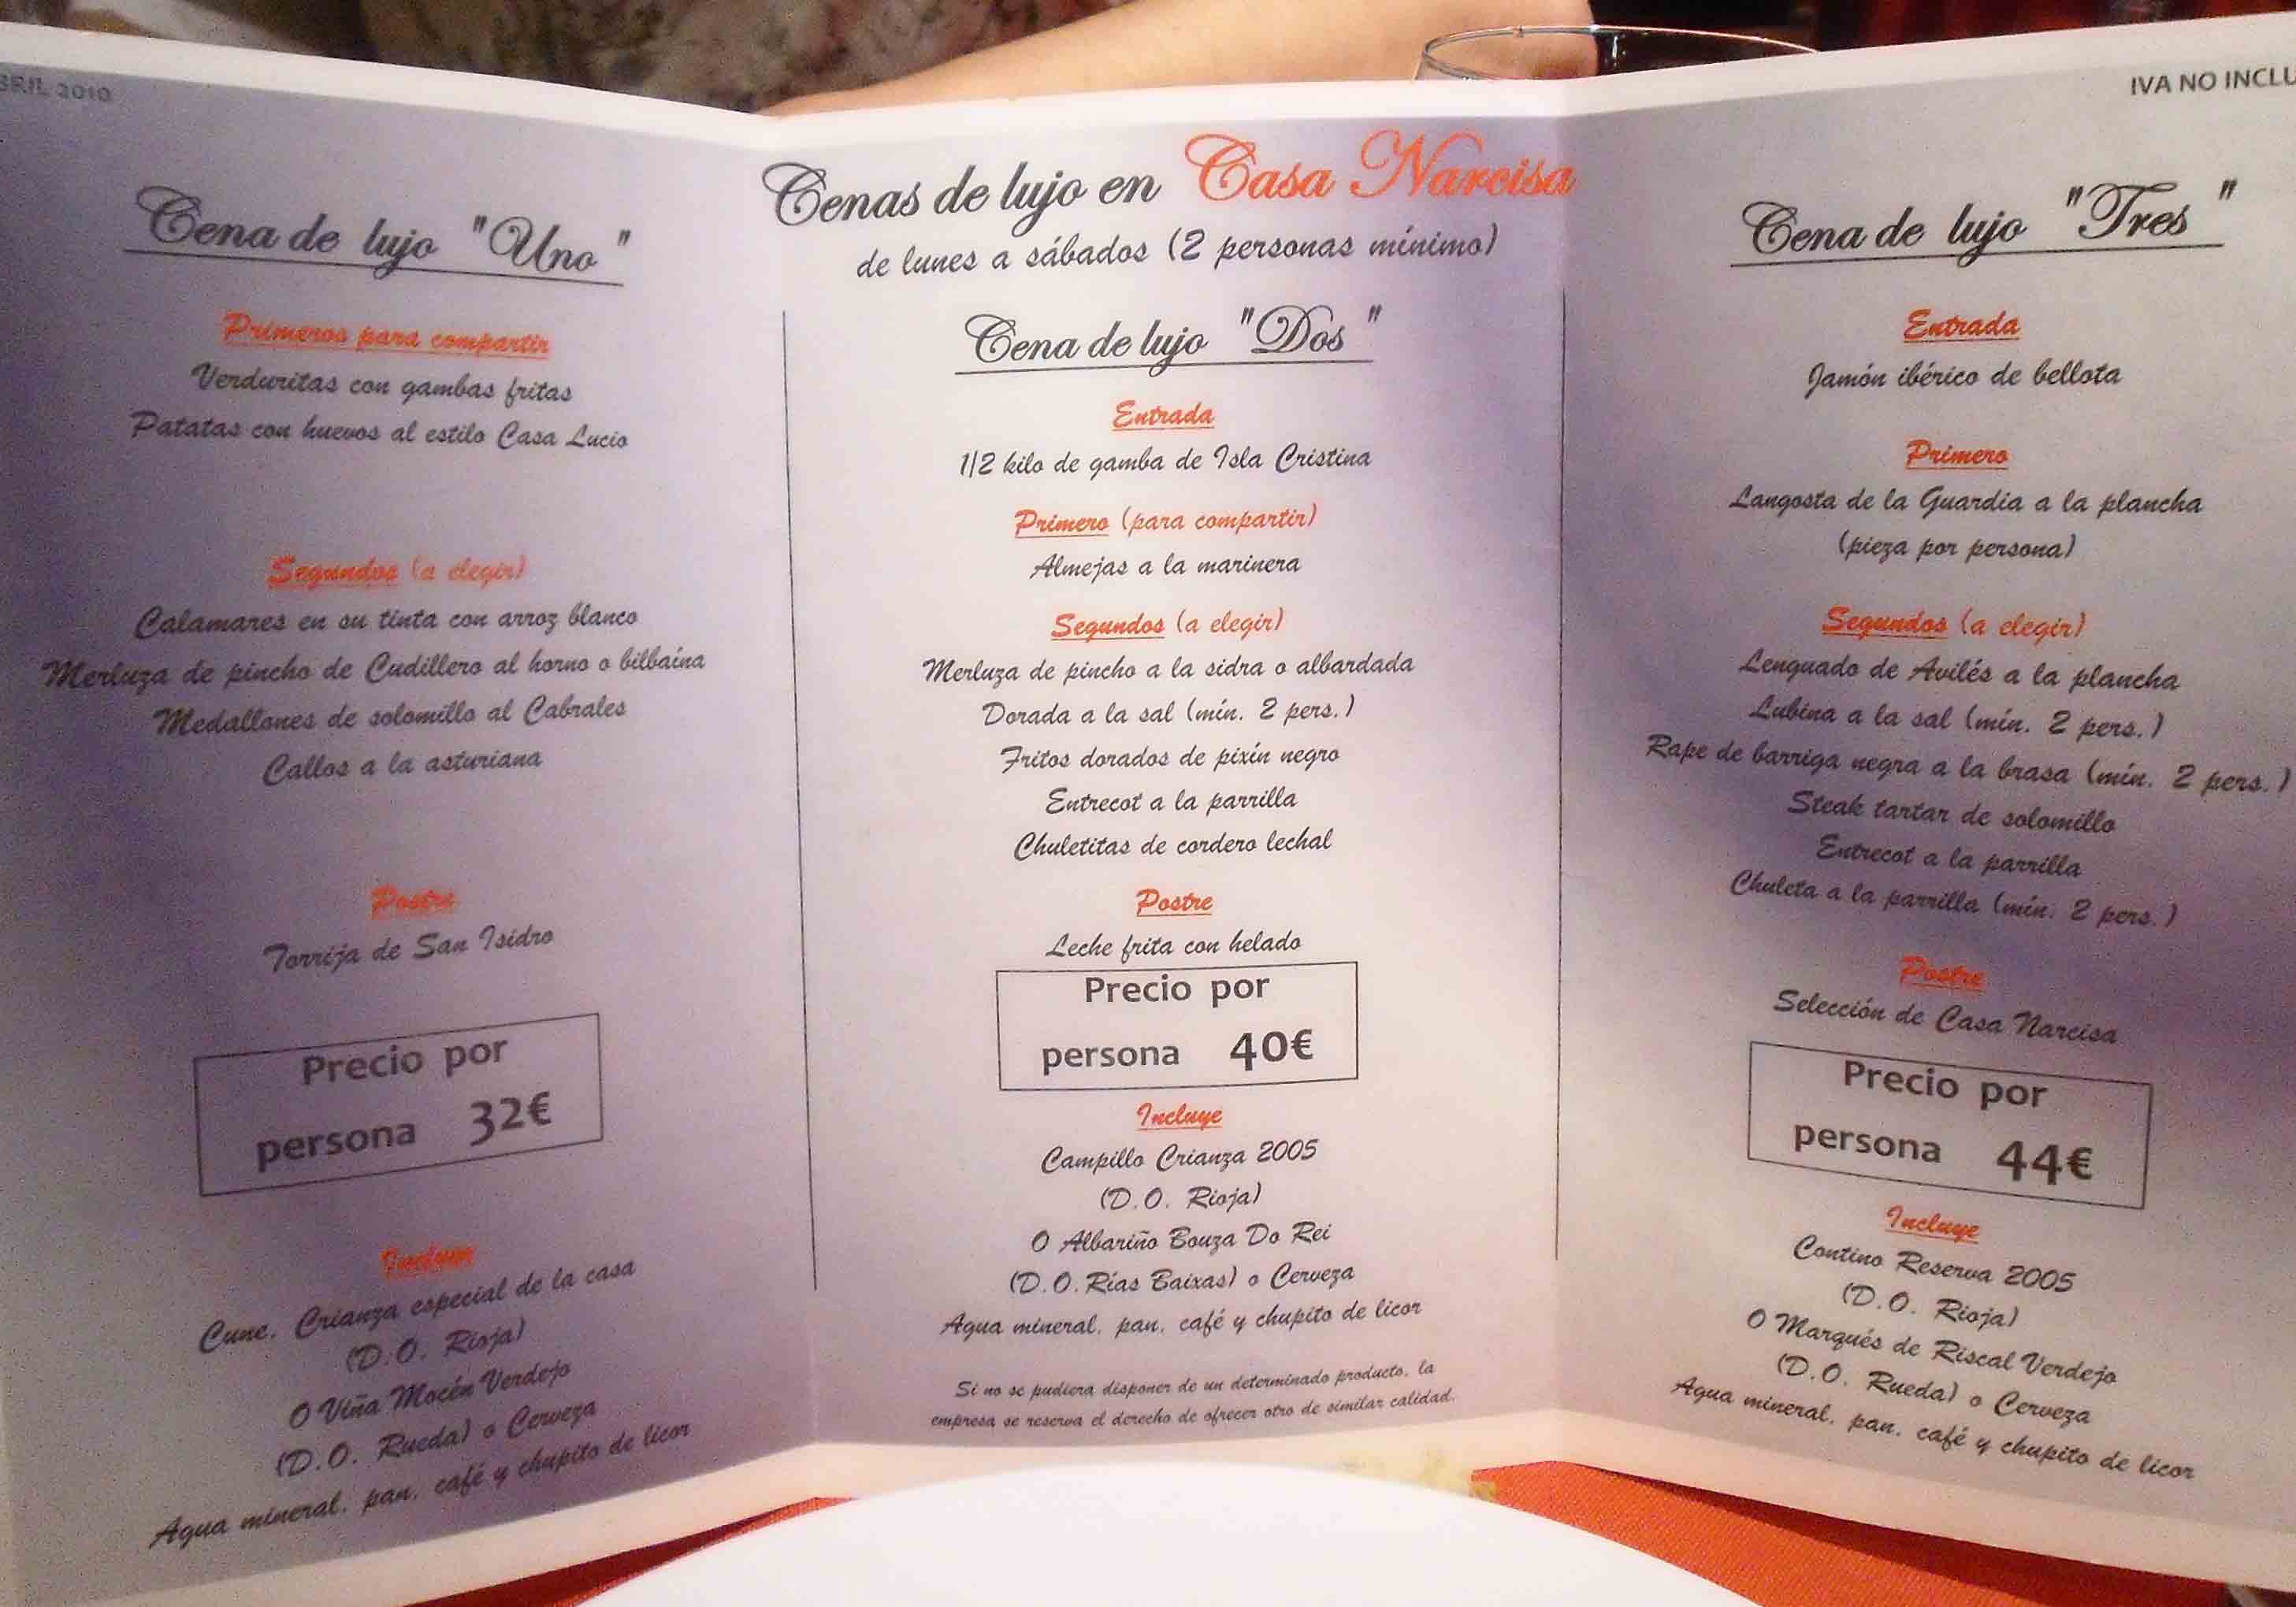 BRIL 2010
Cena de lujo "Uno"
Primeros para compartir
Verduritas con gambas fritas
Patatas con huevos al estilo Casa Lucio
Segundos (a elegir)
Calamares en su tinta con arroz blanco
Merluza de pincho de Cudillero al horno o bilbaína
Medallones de solomillo al Cabrales
Callos a la asturiana
Postre
Torrija de San Isidro
Precio por
persona 32€
Incluye
Cune. Crianza especial de la casa
(D.O. Rioja)
O Viña Mocén Verdejo
(D.O. Rueda) o Cerveza
Agua mineral, pan, café y chupito de licor
Cenas de lujo en Casa Narcisa
de lunes a sábados (2 personas mínimo)
Cena de lujo "Dos"
Entrada
1/2 kilo de gamba de Isla Cristina
Primero (para compartir)
Almejas a la marinera
Segundos (a elegir)
Merluza de pincho a la sidra o albardada
Dorada a la sal (mín. 2 pers.)
Fritos dorados de pixín negro
Entrecot a la parrilla
Chuletitas de cordero lechal
Postre
Leche frita con helado
Precio por
persona 40€
Incluye
Campillo Crianza 2005
(D.O. Rioja)
O Albariño Bouza Do Rei
(D.O. Rías Baixas) o Cerveza
Agua mineral, pan, café y chupito de licor
Si no se pudiera disponer de un determinado producto, la
empresa se reserva el derecho de ofrecer otro de similar calidad.
IVA NO INCLU
Cena de lujo "Tres"
Entrada
Jamón ibérico de bellota
Primero
Langosta de la Guardia a la plancha
(pieza por persona)
Segundos (a elegir)
Lenguado de Avilés a la plancha
Lubina a la sal (mín. 2 pers.)
Rape de barriga negra a la brasa (mín. 2 pers.)
Steak tartar de solomillo
Entrecot a la parrilla
Chuleta a la parrilla (mín. 2 pers.)
Postre
Selección de Casa Narcisa
Precio por
persona 44€
Incluye
Contino Reserva 2005
(D.O. Rioja)
O Marqués de Riscal Verdejo
(D.O. Rueda) o Cerveza
Agua mineral, pan, café y chupito de licor